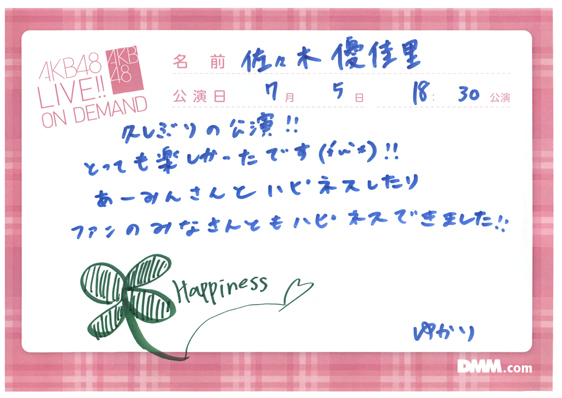 AKB48
LIVE!!
ON DEMAND
AKB
48
名前 佐々木 優佳里
公演日 7月 5日 18:30公演
久しぶりの公演!!
とっても楽しかったです(*'ω'*)!!
あーみんさんとハピネスしたり
ファンのみなさんともハピネスできました!!
Happiness
ゆかり
DMM.com